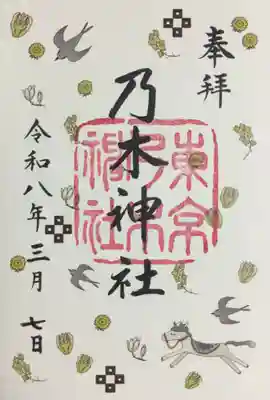 奉拝
乃木神社
東京乃木神社
令和八年三月七日